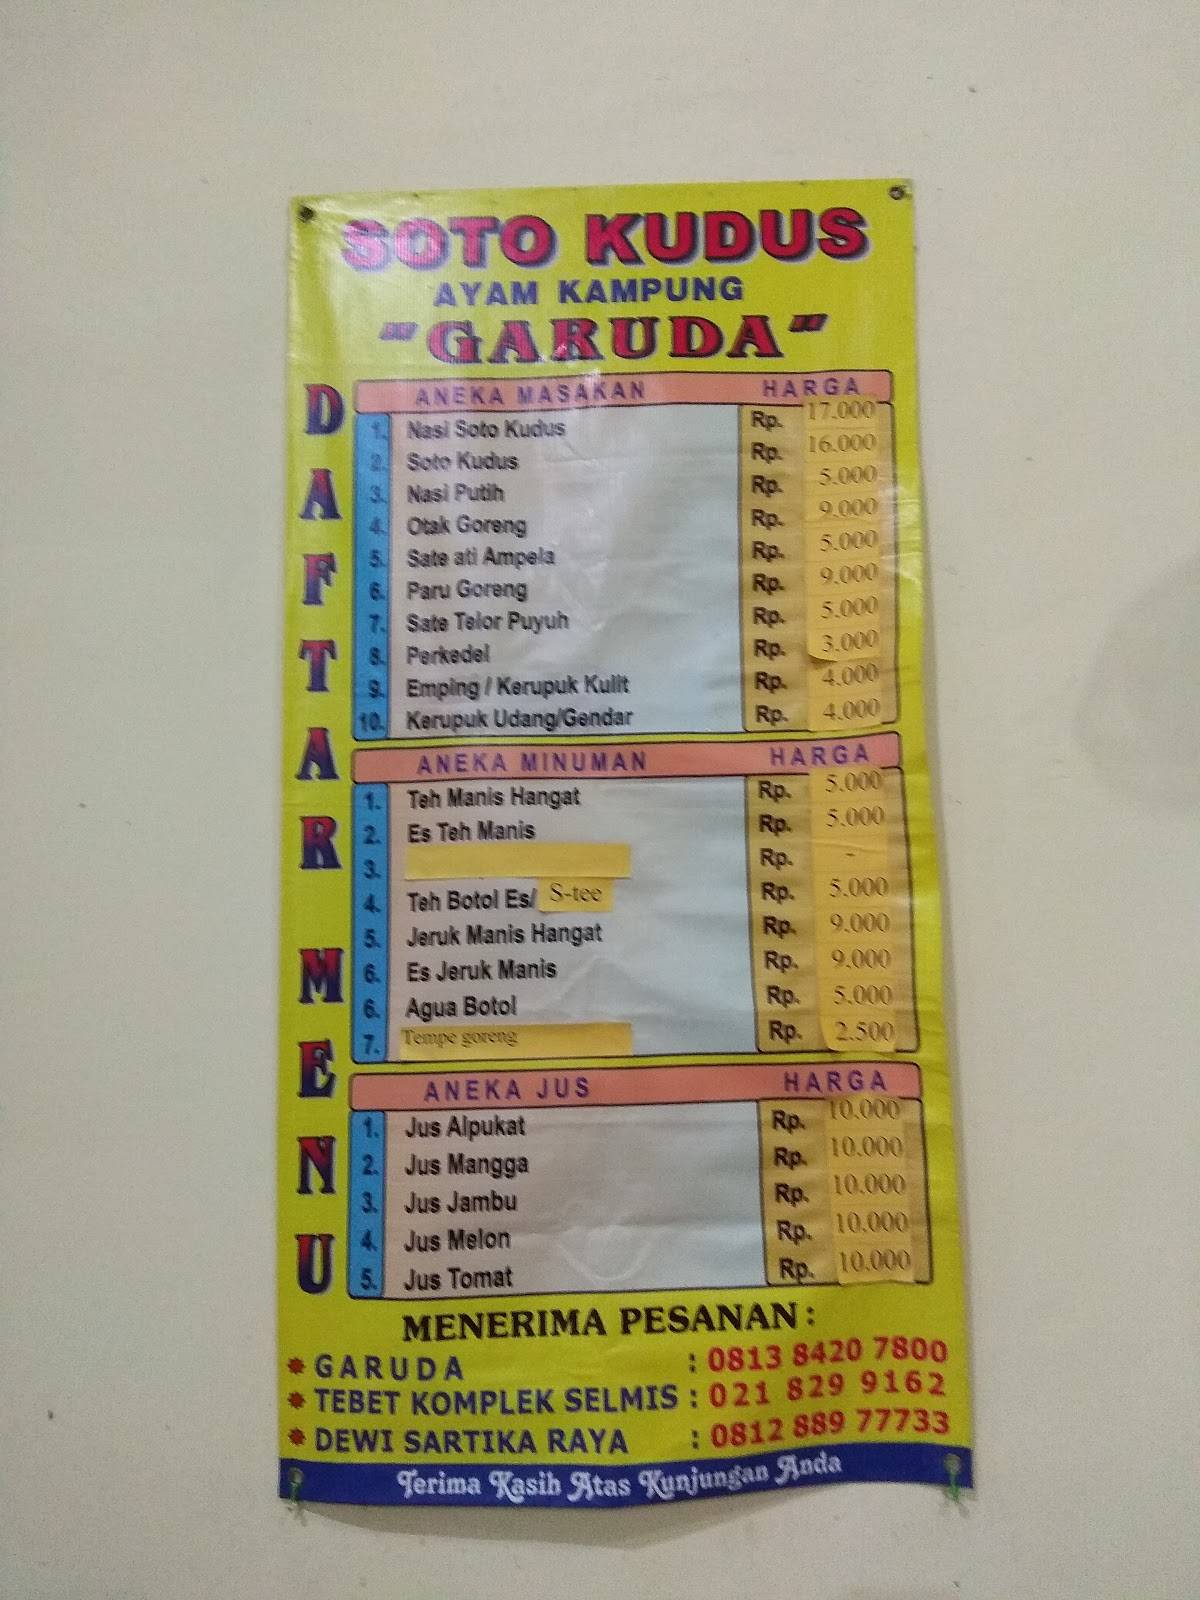 SOTO KUDUS
AYAM KAMPUNG
"GARUDA"
DAFTAR MENU
ANEKA MASAKAN HARGA
1. Nasi Soto Kudus Rp. 17.000
2. Soto Kudus Rp. 16.000
3. Nasi Putih Rp. 5.000
4. Otak Goreng Rp. 9.000
5. Sate ati Ampela Rp. 5.000
6. Paru Goreng Rp. 9.000
7. Sate Telor Puyuh Rp. 5.000
8. Perkedel Rp. 3.000
9. Emping / Kerupuk Kulit Rp. 4.000
10. Kerupuk Udang/Gendar Rp. 4.000
ANEKA MINUMAN HARGA
1. Teh Manis Hangat Rp. 5.000
2. Es Teh Manis Rp. 5.000
3. Rp. -
4. Teh Botol Es/ S-tee Rp. 5.000
5. Jeruk Manis Hangat Rp. 9.000
6. Es Jeruk Manis Rp. 9.000
6. Agua Botol Rp. 5.000
7. Tempe goreng Rp. 2.500
ANEKA JUS HARGA
1. Jus Alpukat Rp. 10.000
2. Jus Mangga Rp. 10.000
3. Jus Jambu Rp. 10.000
4. Jus Melon Rp. 10.000
5. Jus Tomat Rp. 10.000
MENERIMA PESANAN :
* GARUDA : 0813 8420 7800
* TEBET KOMPLEK SELMIS : 021 829 9162
* DEWI SARTIKA RAYA : 0812 889 77733
Terima Kasih Atas Kunjungan Anda